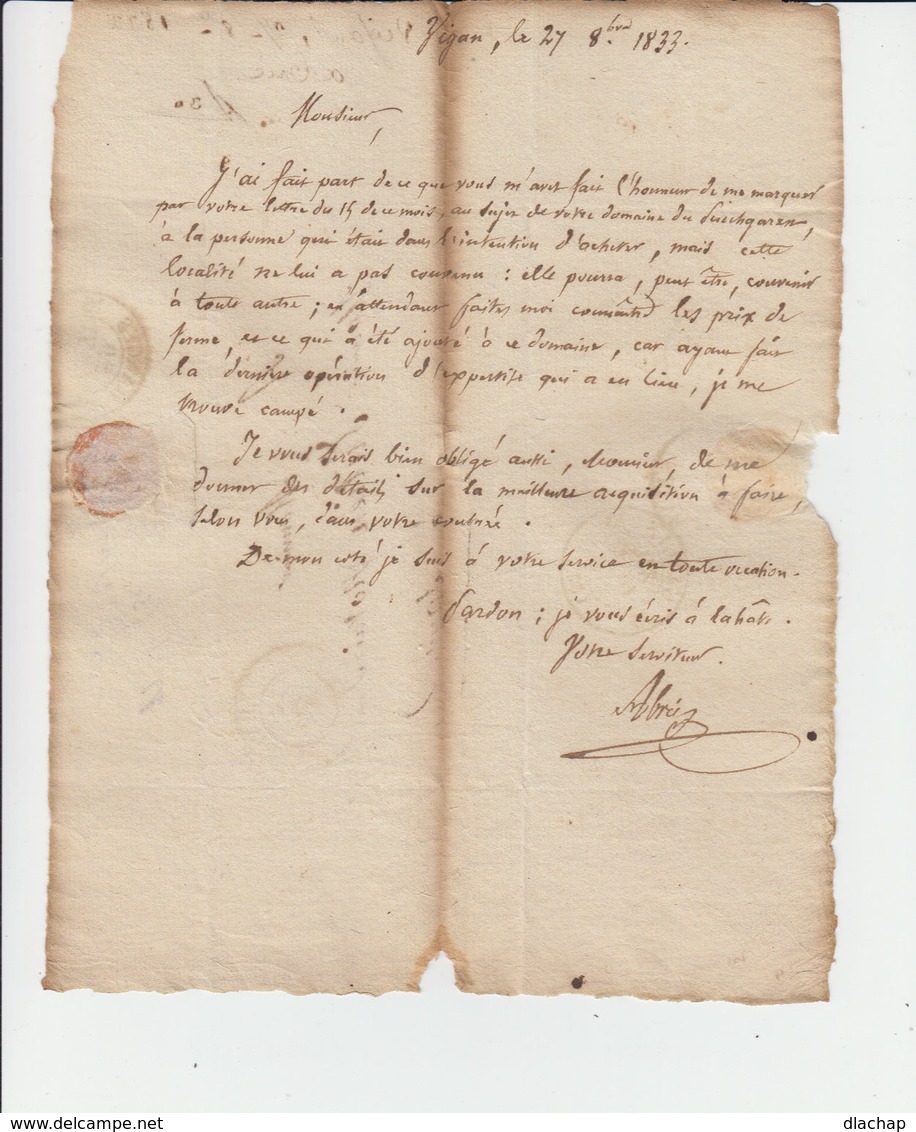 Vigan, le 27 8bre 1833.
Monsieur,
J'ai fait part de ce que vous m'avez fait l'honneur de me marquer
par votre lettre du 15 de ce mois, au sujet de votre domaine du Puechgaren,
à la personne qui était dans l'intention d'acheter, mais cette
localité ne lui a pas convenu : elle pourra, peut être, convenir
à toute autre ; en attendant faites moi connaître les prix de
ferme, et ce qui a été ajouté à ce domaine, car ayant fait
la dernière opération d'expertise qui a eu lieu, je me
trouve campé.
Je vous serais bien obligé aussi, Monsieur, de me
donner des détails sur la meilleure acquisition à faire,
selon vous, dans votre contrée.
De mon coté je suis à votre service en toute occation.
Pardon ; je vous écris à la hâte.
Votre serviteur.
delcampe.net
dlachap